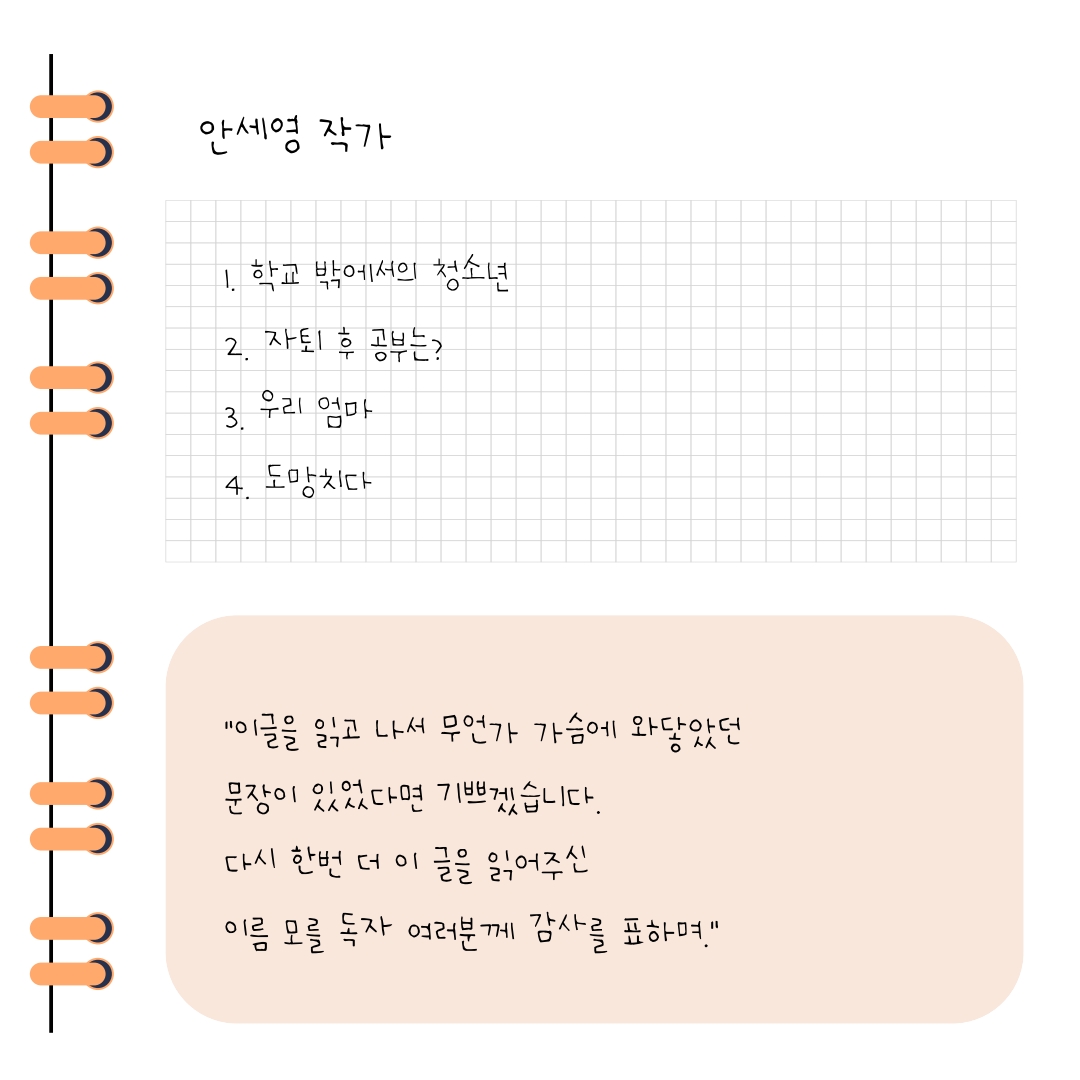 안세영 작가
1. 학교 밖에서의 청소년
2. 자퇴 후 공부는?
3. 우리 엄마
4. 도망치다
"이글을 읽고 나서 무언가 가슴에 와닿았던
문장이 있었다면 기쁘겠습니다.
다시 한번 더 이 글을 읽어주신
이름 모를 독자 여러분께 감사를 표하며."